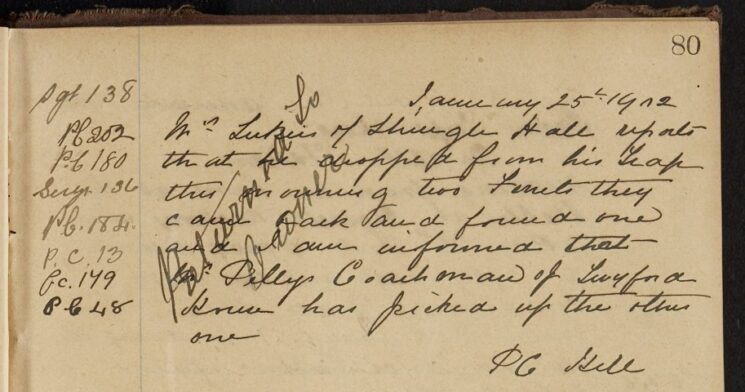 80
January 25th 1912
Sgt 138
PC 202
P.C 180
Sergt 136
PC. 184.
P.C. 13
Pc. 179
P C 48
Mrs Lukies of Shingle Hall reports
that he dropped from his Trap
this morning two Ferrets they
came back and found one
and I am informed that
Mrs Pellys Coachman of Twyford
House has picked up the other
one
PC Hill
Returned to
owner